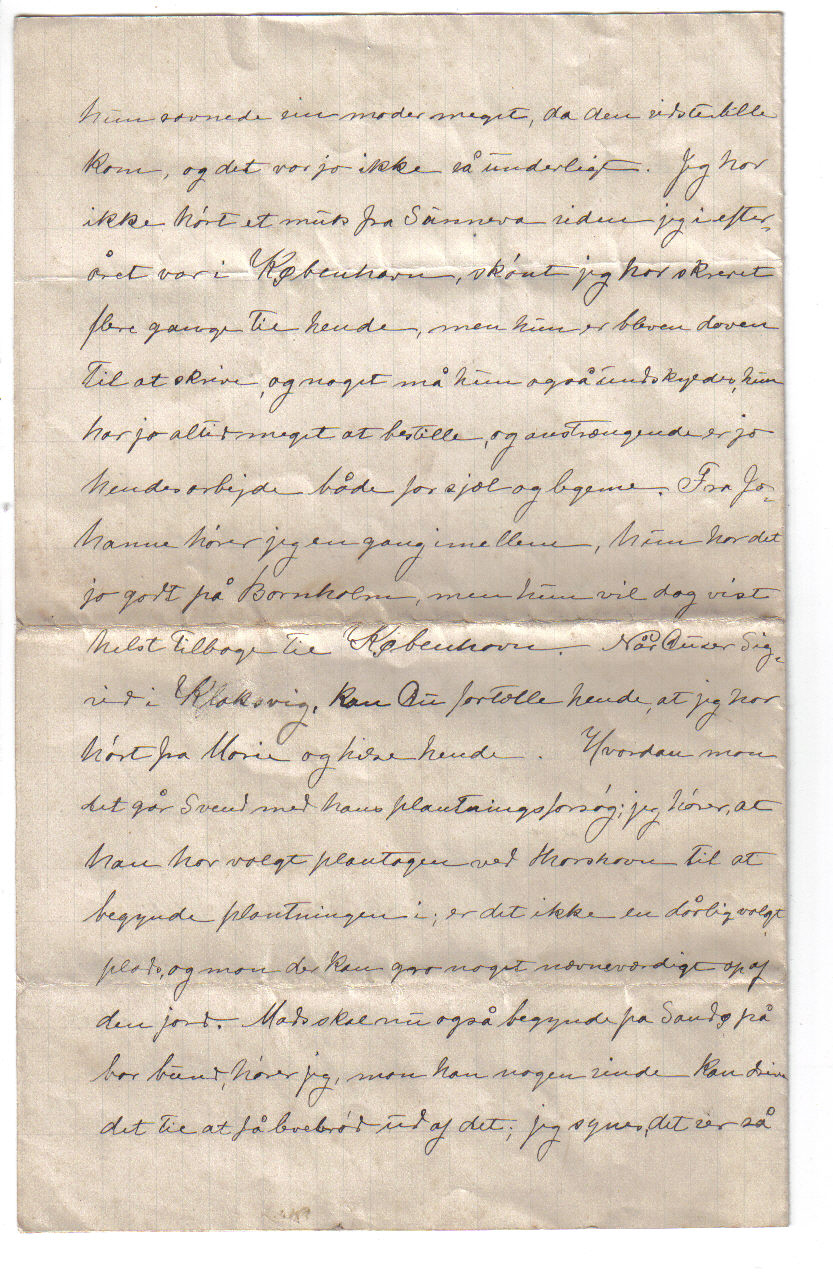 hun savnede sin moder meget, da den sidste lille
kom, og det var jo ikke så underligt. Jeg har
ikke hórt et muks fra Sunneva siden jeg i efter-
året var i København, skónt jeg har skrevet
flere gange til hende, men hun er bleven doven
til at skrive, og noget må hun også undskyldes, hun
har jo altid meget at bestille, og anstrængende er jo
hendes arbejde både for sjæl og legeme. Fra Jo-
hanne hórer jeg en gang imellem, hun har det
jo godt på Bornholm, men hun vil dog vist
helst tilbage til København. Når Du ser Sig-
rid i Klaksvig, kan Du fortælle hende, at jeg har
hórt fra Marie og hilse hende. Hvordan mon
det går Svend med hans plantningsforsóg; jeg hórer, at
han har valgt plantagen ved Thorshavn til at
begynde plantningen i; er det ikke en dårlig valgt
plads, og mon der kan gro noget nævneværdigt op af
den jord. Mads skal nu også begynde på Sandø på
bar bund, hórer jeg, mon han nogen sinde kan drive
det til at få levebród ud af det; jeg synes, det ser så